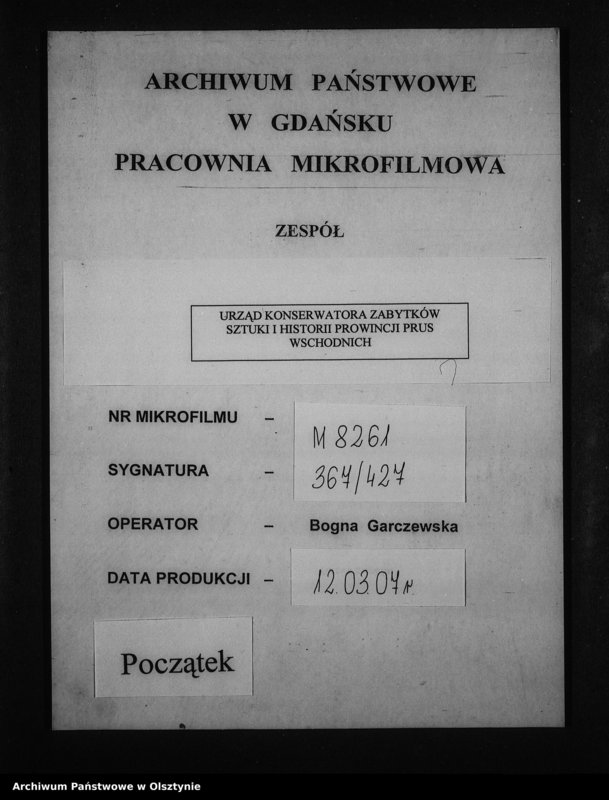 ARCHIWUM PAŃSTWOWE
W GDAŃSKU
PRACOWNIA MIKROFILMOWA
ZESPÓŁ
URZĄD KONSERWATORA ZABYTKÓW
SZTUKI I HISTORII PROWINCJI PRUS
WSCHODNICH
NR MIKROFILMU – M 8261
SYGNATURA – 367/427
OPERATOR – Bogna Garczewska
DATA PRODUKCJI – 12.03.07r.
Początek
Archiwum Państwowe w Olsztynie